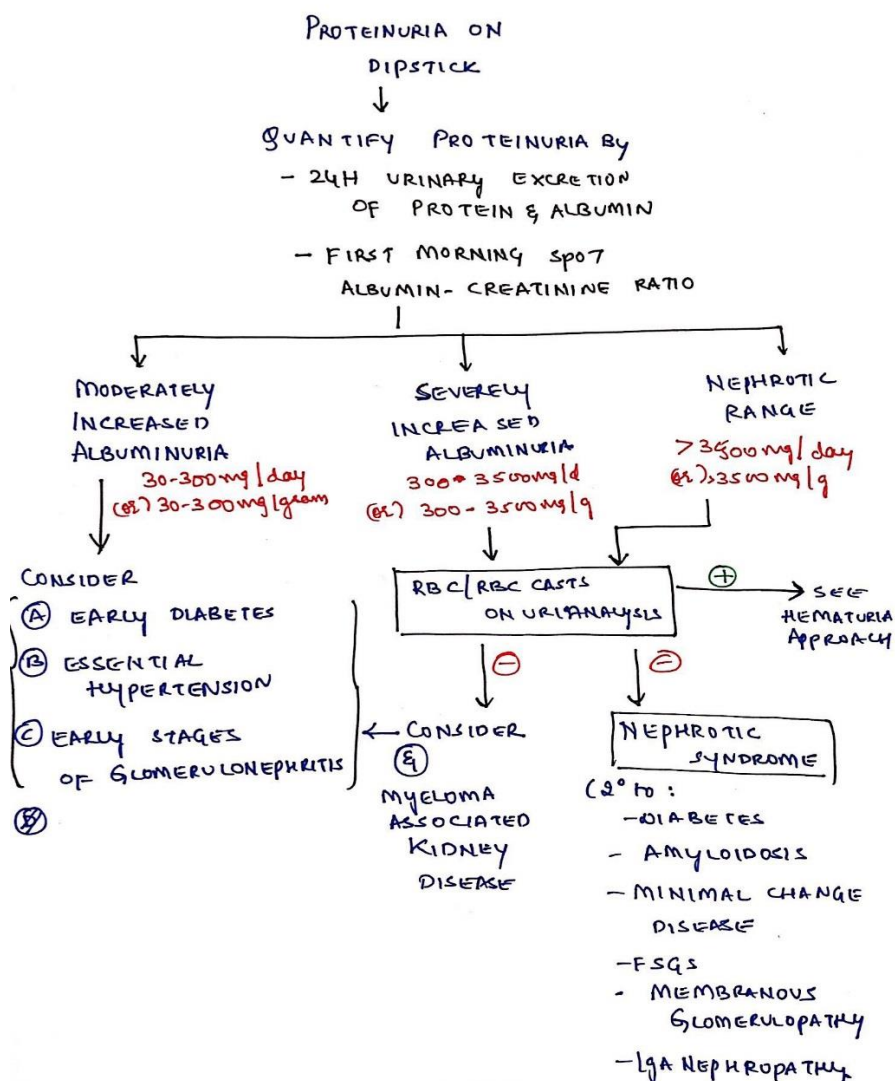 PROTEINURIA ON
DIPSTICK
QUANTIFY PROTEINURIA BY
- 24H URINARY EXCRETION
OF PROTEIN & ALBUMIN
- FIRST MORNING SPOT
ALBUMIN- CREATININE RATIO
MODERATELY
INCREASED
ALBUMINURIA
30-300mg/day
(or) 30-300mg/gram
SEVERELY
INCREASED
ALBUMINURIA
300- 3500mg/d
(or) 300 - 3500mg/g
NEPHROTIC
RANGE
>3500mg/day
(or) >3500mg/g
CONSIDER
A EARLY DIABETES
B ESSENTIAL
HYPERTENSION
C EARLY STAGES
OF GLOMERULONEPHRITIS
RBC/RBC CASTS
ON URIANALYSIS
+
SEE
HEMATURIA
APPROACH
-
-
← CONSIDER
&
MYELOMA
ASSOCIATED
KIDNEY
DISEASE
NEPHROTIC
SYNDROME
(2° to :
-DIABETES
- AMYLOIDOSIS
- MINIMAL CHANGE
DISEASE
-FSGS
- MEMBRANOUS
GLOMERULOPATHY
-IgA NEPHROPATHY